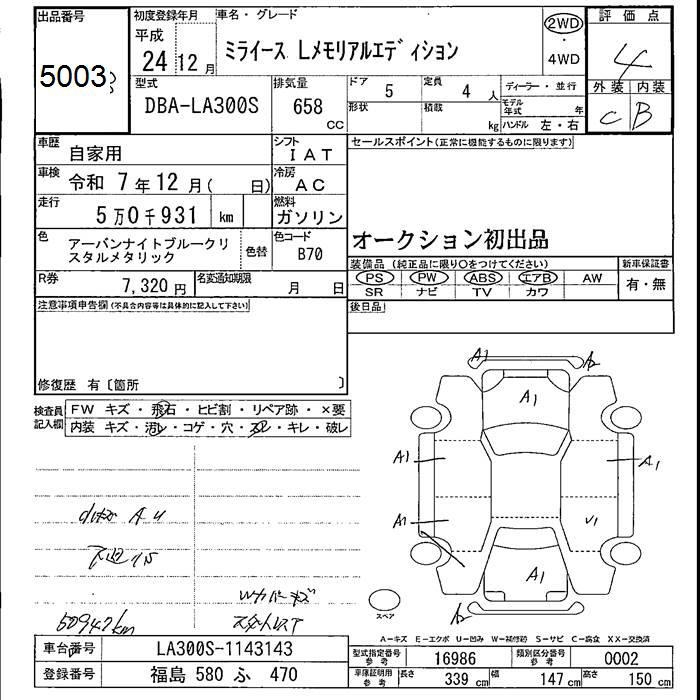 出品番号
5003
初度登録年月
平成
24 12 月
車名・グレード
ミライース Lメモリアルエディション
2WD
・
4WD
評価点
4
外装 内装
C B
型式
DBA-LA300S
排気量
658
CC
ドア
5
定員
4 人
形状
積載
kg
ディーラー・並行
モデル年式 年
ハンドル 左・右
車歴
自家用
シフト
IAT
車検
令和 7 年 12 月( 日)
冷房
AC
走行
5万0千931 km
燃料
ガソリン
色
アーバンナイトブルークリ
スタルメタリック
色替
色コード
B70
R券
7,320 円
名変通知期限
月 日
セールスポイント(正常に機能するものに限ります)
オークション初出品
装備品(純正品に限り○をつけてください)
新車保証書
PS PW ABS エアB AW
SR ナビ TV カワ
有・無
後日品
注意事項申告欄(不具合内容等は具体的に記入して下さい)
修復歴 有〔箇所 〕
検査員
記入欄
FW キズ・飛石・ヒビ割・リペア跡・×要
内装 キズ・汚レ・コゲ・穴・スレ・キレ・破レ
50947km
A1
A2
A1
A1
A1
A1
U1
A1
A2
スペア
A-キズ E-エクボ U-凹み W-補修跡 S-サビ C-腐食 XX-交換済
車台番号
LA300S-1143143
登録番号
福島 580 ふ 470
型式指定番号
参考
16986
類別区分番号
参考
0002
車庫証明用
参考
長さ 339 cm
幅 147 cm
高さ 150 cm